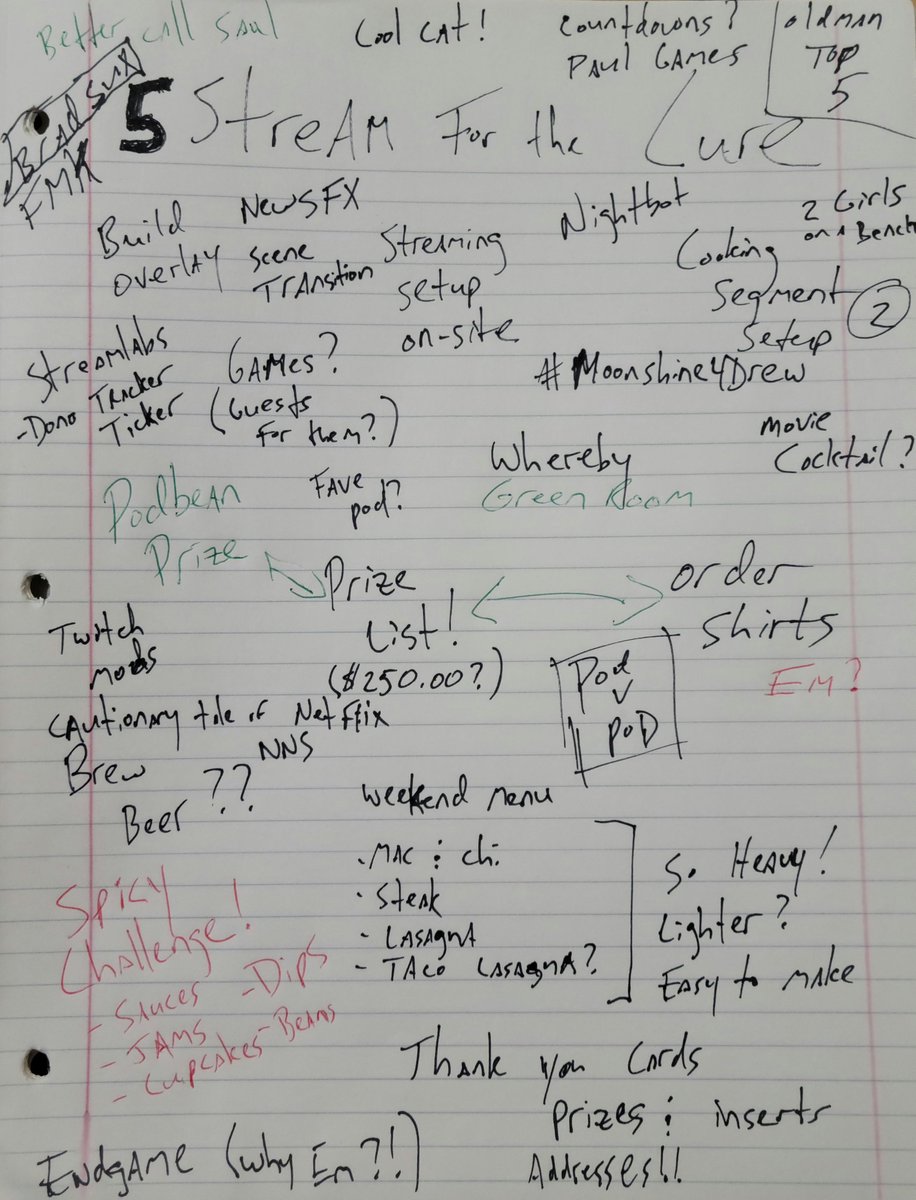 Better Call Saul
Cool Cat!
Countdowns?
Paul Games
oldman
Top
5
Brad Sux
FMK
5 Stream For the Cure
Build
overlay
NewsFX
Scene
Transition
Streaming
setup
on-site
Nightbot
Cooking
Segment
Setup
2 Girls
on a Bench
2
Streamlabs
-Dono Tracker
Ticker
Games?
(Guests
for them?)
#Moonshine4Drew
Podbean
Prize
Fave
pod?
Whereby
Green Room
movie
Cocktail?
Prize
List!
($250.00?)
order
Shirts
Em?
Twitch
mods
Pod
v
Pod
Cautionary tale of Netflix
NNS
Brew
Beer??
weekend menu
. Mac & ch.
. Steak
- Lasagna
- Taco Lasagna?
So Heavy!
Lighter?
Easy to make
Spicy
Challenge!
- Sauces
- Jams
- Cupcakes
- Dips
- Beans
Thank you Cards
Prizes & inserts
Addresses!!
Endgame (why Em?!)